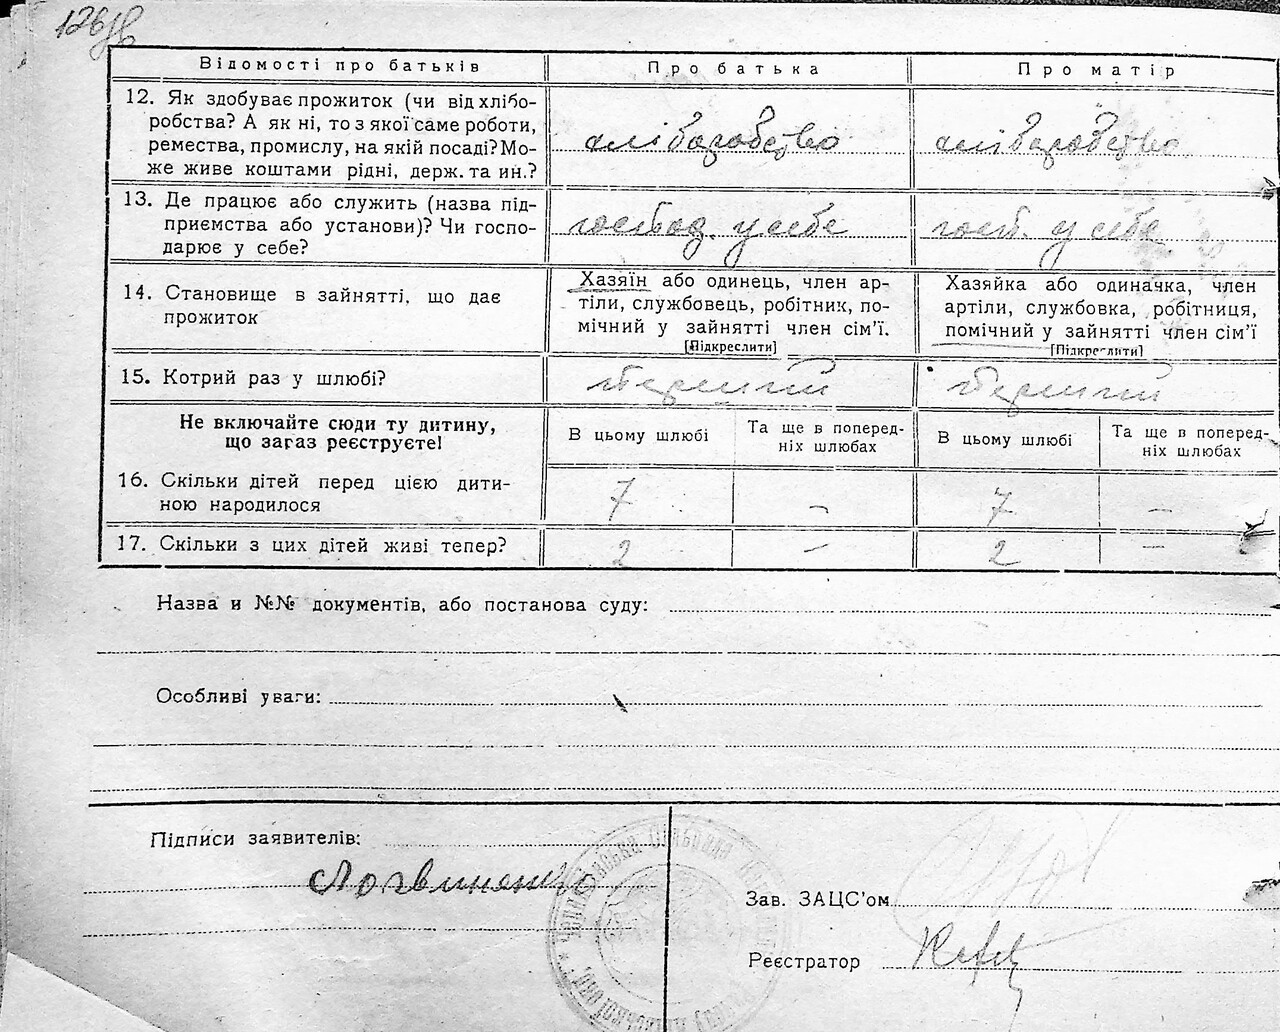 126зв
Відомості про батьків
Про батька
Про матір
12. Як здобуває прожиток (чи від хлібо-
робства? А як ні, то з якої саме роботи,
ремества, промислу, на якій посаді? Мо-
же живе коштами рідні, держ. та ин.?
хліборобство
хліборобство
13. Де працює або служить (назва під-
приємства або установи)? Чи госпо-
дарює у себе?
господ. у себе
госп. у себе
14. Становище в зайнятті, що дає
прожиток
Хазяїн або одинець, член ар-
тіли, службовець, робітник, по-
мічний у зайнятті член сім'ї.
[Підкреслити]
Хазяйка або одиначка, член
артіли, службовка, робітниця,
помічний у зайнятті член сім'ї
[Підкреслити]
15. Котрий раз у шлюбі?
перший
перший
Не включайте сюди ту дитину,
що зараз реєструєте!
В цьому шлюбі
Та ще в поперед-
ніх шлюбах
В цьому шлюбі
Та ще в поперед-
ніх шлюбах
16. Скільки дітей перед цією дити-
ною народилося
7
–
7
–
17. Скільки з цих дітей живі тепер?
2
–
2
–
Назва и №№ документів, або постанова суду:
Особливі уваги:
Підписи заявителів:
Логвиненко
Зав. ЗАЦС'ом
Реєстратор